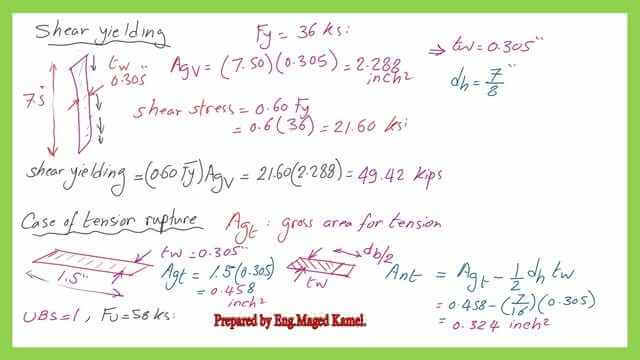 Shear yielding
Fy = 36 ksi
⇒ tw = 0.305"
dh = 7/8"
tw
0.305"
7.5"
Agv = (7.50)(0.305) = 2.288 inch²
shear stress = 0.60 Fy
= 0.6(36) = 21.60 ksi
shear yielding = (0.60 Fy) Agv = 21.60(2.288) = 49.42 kips
Case of tension rupture
Agt: gross area for tension
tw = 0.305"
1.5"
Agt = 1.5(0.305)
= 0.458 inch²
db/2
tw
Ant = Agt - 1/2 dh tw
= 0.458 - (7/16)(0.305)
= 0.324 inch²
UBS = 1, Fu = 58 ksi
Prepared by Eng.Maged Kamel.